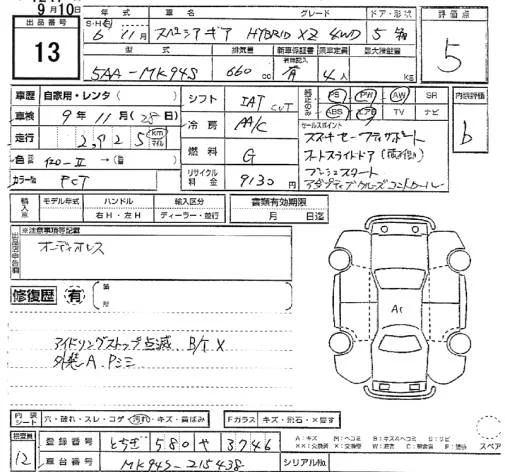 9月10日
出品番号 13
年式 車名 グレード ドア・形状 評価点
S・H・R 6年11月 スペーシアギア HYBRID XZ 4WD 5 5
型式 排気量 新車保証書 乗車定員 最大積載量
5AA-MK94S 660cc 有 4人 kg
車歴 自家用・レンタ( ) シフト IAT CVT PS PW AW SR 内装評価
車検 9年11月(28日) 冷房 AA/C ABS エアB TV ナビ b
走行 2,925 km マイル セールスポイント
スズキセーフティサポート
色 (色) 燃料 G オートスライドドア
プッシュスタート
カラーNo リサイクル料金 9130円 アダプティブクルーズコントロール
輸入車 モデル年式 ハンドル 輸入区分 書類有効期限
右H・左H ディーラー・並行 月 日迄
※注意事項等記載
オーディオレス
修復歴 有
A1
アイドリングストップ点滅 B/T X
外装A Pミミ
内装シート 穴・破れ・スレ・コゲ・汚れ・キズ・異ばみ Fガラス キズ・飛石・X要す
検査員 12 登録番号 とちぎ 580 や 3746 スペア
車台番号 MK94S-215438 シリアルNo.